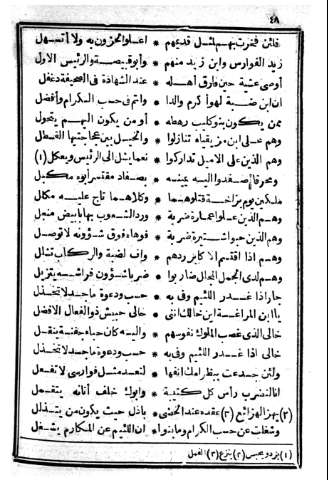 ٤٨
فلئن فخرت بهم لمثل قديمهم * اعلو الحزون به ولا أتسهل
زيد الفوارس وابن زيد منهم * وأبو قبيصة والرئيس الاول
أوصى عشية حين فارق أهله * عند الشهادة فى الصحيفة دغفل
ان ابن ضبة لهو أكرم والدا * وأتم فى حسب الكرام وأفضل
ممن يكون بنو كليب رهطه * أو من يكون اليهم يتحول
وهم على ابن مزيقياء تنازلوا * والخيل بين عجاجتيها القسطل
وهم الذين على الاميل تداركوا * نعما يشل الى الرئيس ويعكل (١)
ومحرقا صفدوا اليه يمينه * بصفاد مقتسر أبوه مكبل
ملكين يوم بزاخة قتلوهما * وكلاهما تاج عليه مكلل
وهم الذين علوا عمارة ضربة * ورد الشؤون بها بابيض منصل
وهم الذين حبوا شتير ضربة * فوهاء فوق شؤونه لا توصل
وهم اذا اقتسم الاكابر ردهم * واف لضبة والركاب تشلل
وهم لدى الجمل المجلل ضاربوا * ضربا شؤون فراشه يتزيل
جار اذا غدر اللئيم وفى به * حسب ودعوة ماجد لا تخذل
يا ابن المراغة ابن خالك اننى * خالى حبيش ذو الفعال الافضل
خالى الذى غصب الملوك نفوسهم * واليه كان حباء جفنة ينقل
خالى اذا غدر اللئيم وفى به * حسب ودعوة ماجد لا تخذل
ولئن جدعت ببظر أمك أنفها * لتعد مثل فوارسى لا تفعل
انا لنضرب رأس كل كتيبة * وأبوك خلف أتانه يتقمل
(٢) يهز الهرانع (٣) عقده عند الخصى * باذل حيث يكون من يتذلل
وشغلت عن حسب الكرام وما بنوا * ان اللئيم عن المكارم يشغل
(١)
(٢) ينزع (٣) القمل